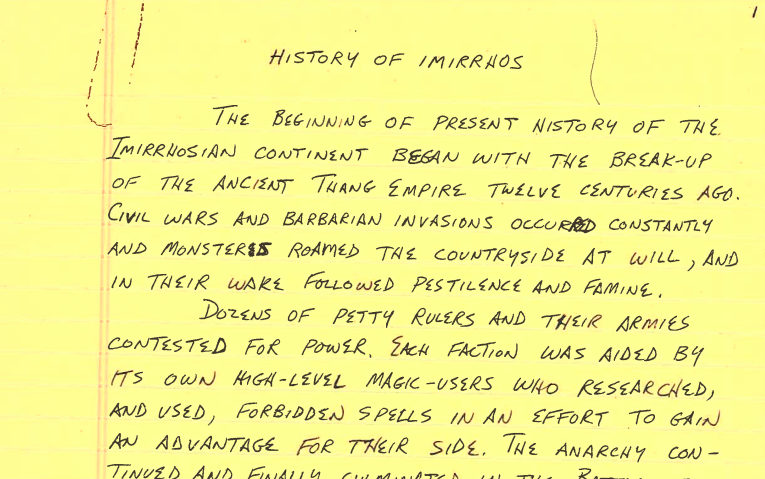 1
HISTORY OF IMIRRHOS
THE BEGINNING OF PRESENT HISTORY OF THE
IMIRRHOSIAN CONTINENT BEGAN WITH THE BREAK-UP
OF THE ANCIENT THANG EMPIRE TWELVE CENTURIES AGO.
CIVIL WARS AND BARBARIAN INVASIONS OCCURRED CONSTANTLY
AND MONSTERS ROAMED THE COUNTRYSIDE AT WILL, AND
IN THEIR WAKE FOLLOWED PESTILENCE AND FAMINE.
DOZENS OF PETTY RULERS AND THEIR ARMIES
CONTESTED FOR POWER. EACH FACTION WAS AIDED BY
ITS OWN HIGH-LEVEL MAGIC-USERS WHO RESEARCHED,
AND USED, FORBIDDEN SPELLS IN AN EFFORT TO GAIN
AN ADVANTAGE FOR THEIR SIDE. THE ANARCHY CON-
TINUED AND FINALLY CULMINATED IN THE